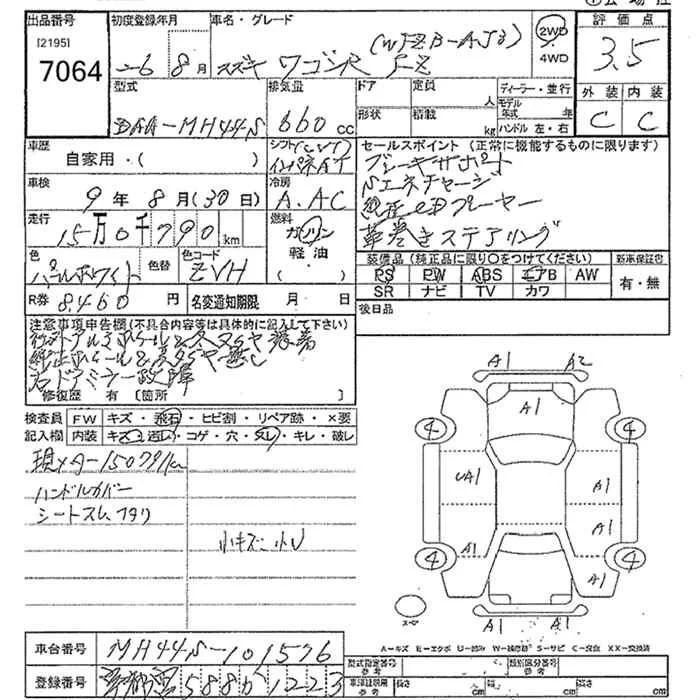 出品番号 初度登録年月 車名・グレード 評価点
[2195] 7064
26 8月 スズキ ワゴンR FZ (WFZB-AJ3) 2WD 4WD 3.5
型式 排気量 ドア 定員 人 ディーラー・並行 外装 内装
形状 積載 kg モデル年式 年 ハンドル 左・右
DAA-MH44S 660cc C C
車歴 シフト(CVT) セールスポイント(正常に機能するものに限ります)
自家用・( ) インパネAT ブレーキサポート
車検 冷房 Sエネチャージ
9年8月(30日) A.AC 純正CDプレーヤー
走行 燃料 革巻きステアリング
15万0千790km ガソリン
軽油
( )
色 色替 色コード 装備品(純正品に限り〇をつけてください) 新車保証書
パールホワイト ZVH PS PW ABS エアB AW 有・無
SR ナビ TV カワ
R券 8460円 名変通知期限 月 日 後日品
注意事項申告欄(不具合内容等は具体的に記入して下さい)
社外アルミホイール&スタッドレス装着
純正ホイール&夏タイヤ無し
右ドアミラー故障
修復歴 有 [箇所 ]
検査員 FW キズ・飛石・ヒビ割・リペア跡・×要
記入欄 内装 キズ・汚レ・コゲ・穴・スレ・キレ・破レ
現メーター150791km
ハンドルカバー
シートスレ、
小キズ、小U
A1 A2
A1
4 4
UA1 A1
A1
A1
4 4
A1
A1 A1
スペアー
A-キズ E-エクボ U-凹み W-補修跡 S-サビ C-腐食 X-要交換 XX-交換済
車台番号 MH44S-101576
登録番号 588 1223
型式指定番号 参考 類別区分番号 参考
車検証期間 参考 長さ cm 幅 cm 高さ cm